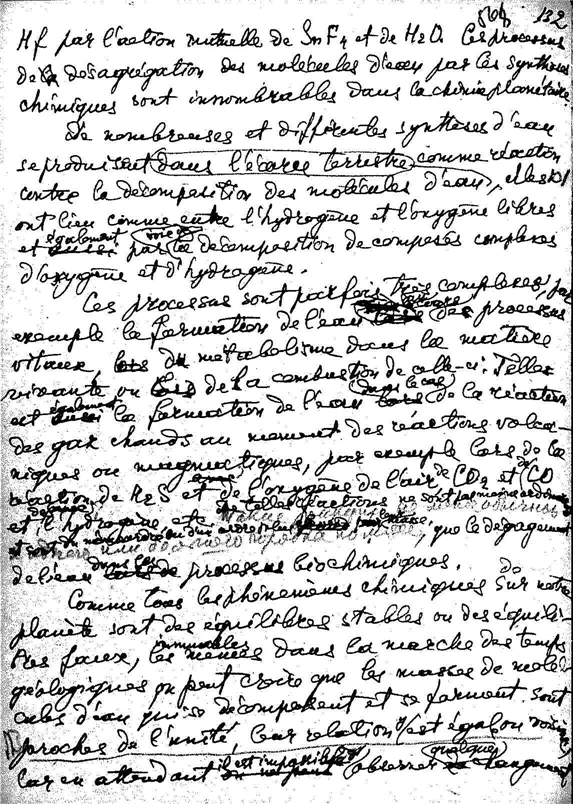 132
Hf par l'action mutuelle de SnF4 et de H2O. Ces processus
de la désagrégation des molécules d'eau par les synthèses
chimiques sont innombrables dans la chimie planétaire
De nombreuses et différentes synthèses d'eau
se produisent dans l'écorce terrestre comme réaction
contre la décomposition des molécules d'eau, elles
ont lieu comme entre l'hydrogène et l'oxygène libres
et également par la décomposition de composés complexes
d'oxygène et d'hydrogène.
Ces processus sont parfois très complexes, par
exemple la formation de l'eau des processus
vitaux, du métabolisme dans la matière
vivante ou de la combustion de celle-ci. Telles
est également la formation de l'eau dans le cas de la réaction
des gaz chauds au moment des réactions volca-
niques ou magmatiques, par exemple lors de la
réaction de H2S et de l'oxygène de l'air, de CO2 et de CO
et l'hydrogène etc. de telles réactions ne sont pas
que le dégagement
de l'eau dans les processus biochimiques.
Comme tous les phénomènes chimiques de sur notre
planète sont des équilibres stables ou des équili-
bres faux, les mêmes dans la marche des temps
géologiques on peut croire que les masses de molé-
cules d'eau qui se décomposent et se forment sont
proches de l'unité, leur relation est égal ou voisine
car en attendant il est impossible observer quelque changement